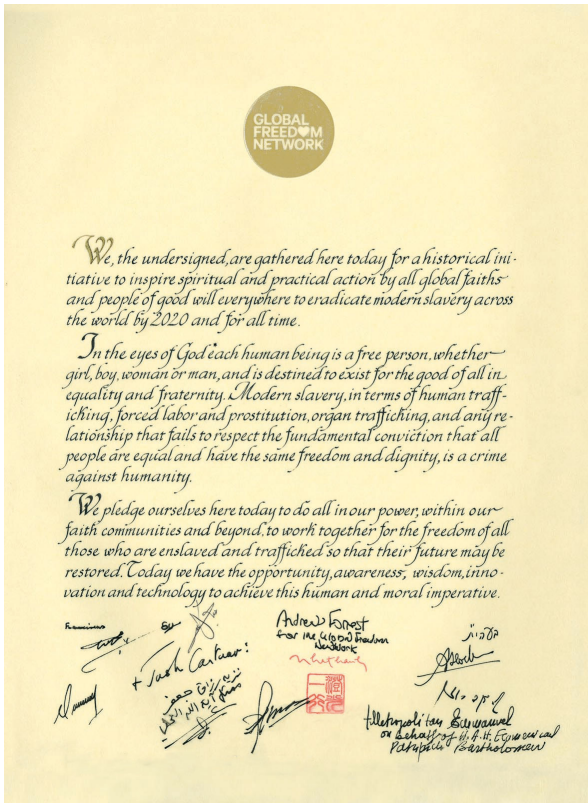 GLOBAL
FREED♥M
NETWORK
We, the undersigned, are gathered here today for a historical ini-
tiative to inspire spiritual and practical action by all global faiths
and people of good will everywhere to eradicate modern slavery across
the world by 2020 and for all time.
In the eyes of God* each human being is a free person, whether
girl, boy, woman or man, and is destined to exist for the good of all in
equality and fraternity. Modern slavery, in terms of human traff-
icking, forced labor and prostitution, organ trafficking, and any re-
lationship that fails to respect the fundamental conviction that all
people are equal and have the same freedom and dignity, is a crime
against humanity.
We pledge ourselves here today to do all in our power, within our
faith communities and beyond, to work together for the freedom of all
those who are enslaved and trafficked so that their future may be
restored. Today we have the opportunity, awareness, wisdom, inno-
vation and technology to achieve this human and moral imperative.
Franciscus
Andrew Forrest
for the Global Freedom
Network
בעה״ית
Metropolitan Emmanuel
on behalf of H.A.H. Ecumenical
Patriarch Bartholomew